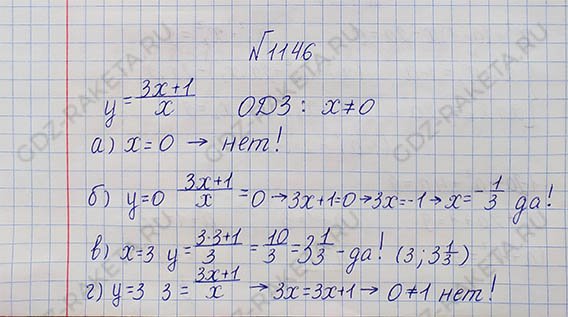 №1146
y = (3x+1)/x ОДЗ: x≠0
а) x=0 → нет!
б) y=0 (3x+1)/x = 0 → 3x+1=0 → 3x=-1 → x= -1/3 да!
в) x=3 y= (3·3+1)/3 = 10/3 = 3 1/3 - да! (3; 3 1/3)
г) y=3 3 = (3x+1)/x → 3x=3x+1 → 0≠1 нет!
GDZ-RAKETA.RU